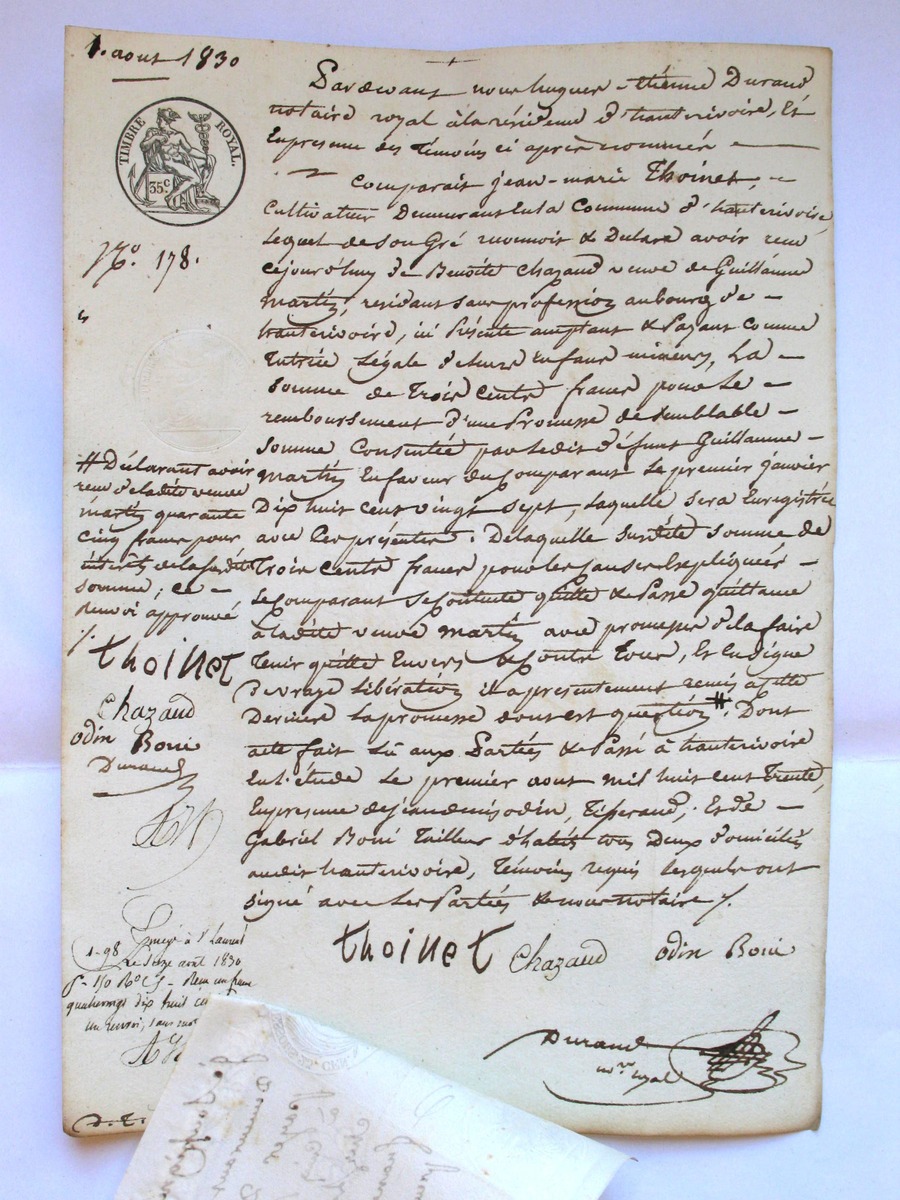 1. aout 1830
TIMBRE ROYAL.
35 c.
N.o 178.
Pardevant nous hugues-étienne Durand
notaire royal à la résidence d'hauterivoire, Et
En présence des témoins ci après nommés
Comparait jean-marie Thoinet,
Cultivateur Demeurant en la Commune d'hauterivoire,
Lequel de son Gré reconnoit & Déclare avoir reçu
cejourd'huy de Benoite Chazaud veuve de Guillaume
martin, residant sans profession au bourg de
hauterivoire, ici Présente acceptant & Payant comme
Tutrice Légale de leurs Enfans mineurs, La
somme de Trois Cents francs pour Le
remboursement d'une Promesse de semblable
somme Consentie par Ledit défunt Guillaume
martin En faveur du Comparant Le premier janvier
Dix huit cent vingt sept, Laquelle sera Enregistrée
avec Les présentes. De laquelle susdite somme de
Trois Cents francs pour les causes Expliquées
Le Comparant se Contente quitte & Passe quittance
à ladite veuve martin avec promesse de la faire
Tenir quitte Envers & Contre Tous, Et En signe
De vraye Libération il a présentement remis à cette
Dernière La promesse dont est question #. Dont
acte fait Lu aux Parties & Passé à hauterivoire
En L'étude Le premier aout mil huit cent Trente,
En présence de jean denis odin, Tisserand, Et de
Gabriel Boni Tailleur d'habits tous Deux domiciliés
audit hauterivoire, Témoins requis lesquels ont
signé avec Les Parties & nous notaire /.
Thoinet Chazaud odin Boni
Durand
not.re royal
# Déclarant avoir
reçu de ladite veuve
martin quarante
cinq francs pour
intérêts de la susdite
somme; ce
Renvoi approuvé
/.
Thoinet
Chazaud
odin Boni
Durand
Enregé à St Laurent
1-98 Le seize août 1830
fo 150 Ro C 5 Reçu un franc
quatrevingt dix huit
un renvoi, sans